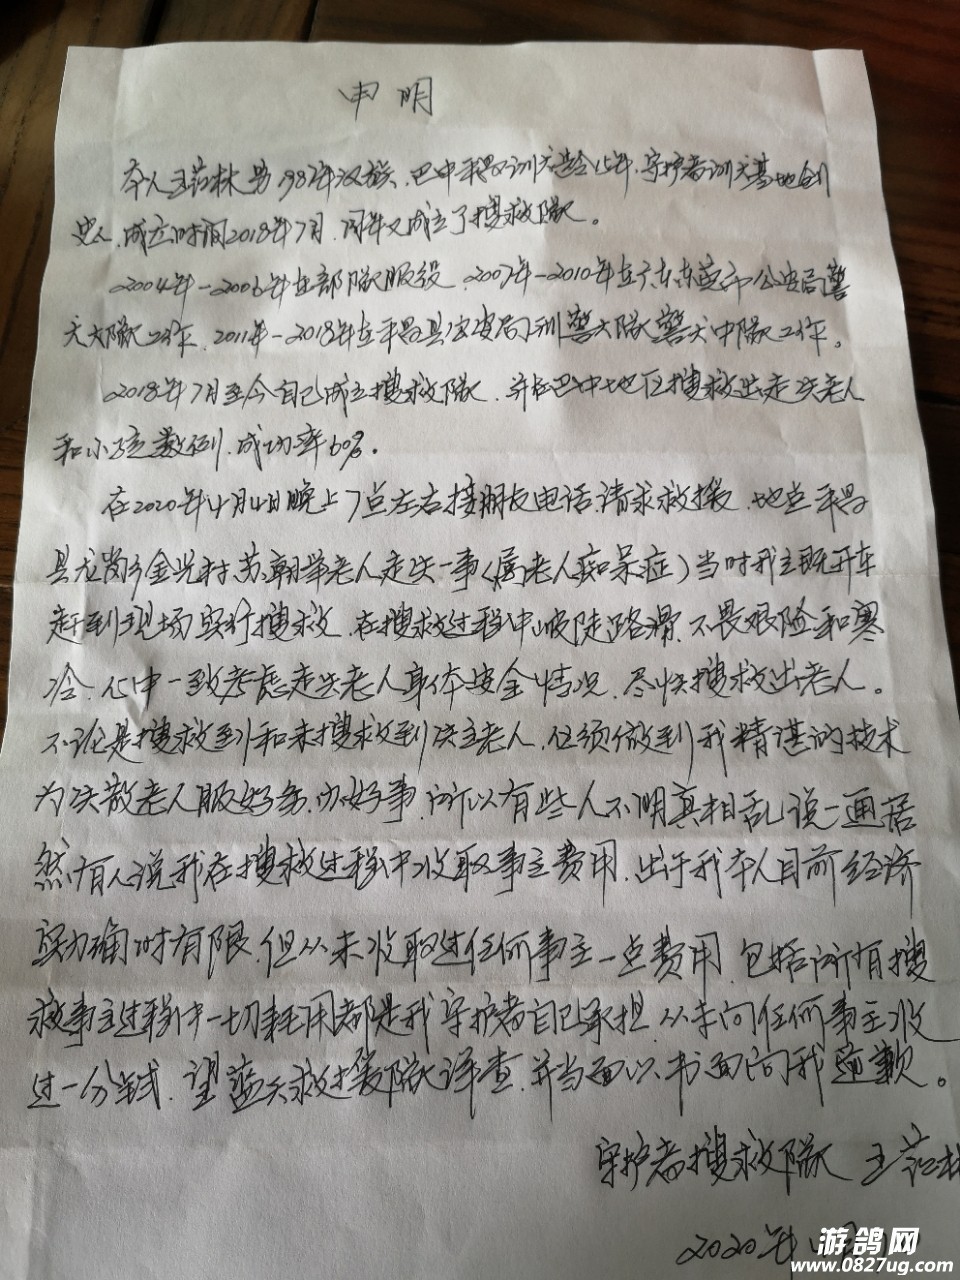 申明
本人王 林 男1982年汉族、巴中平昌 训犬龄15年.守护者训犬基地创
史人、成立时间2018年7月.同年又成立了搜救队。
2004年-2006年在部队服役.2007年-2010年在广东东莞市公安局警
犬大队工作.2011年-2018年在平昌县公安局刑警大队警犬中队工作。
2018年7月至今自己成立搜救队.并在巴中地区搜救出走失老人
和小孩数例.成功率60%.
在2020年4月4日晚上7点左右接朋友电话.请求救援.地点平昌
县龙岗乡金光村.苏朝举老人走失一事(属老人痴呆症)当时我立既开车
赶到现场实行搜救.在搜救过程中坡陡路滑.不畏艰险和寒
冷.心中一致考虑走失老人身体安全情况.尽快搜救出老人。
不论是搜救到和未搜救到失主老人.必须做到我精湛的技术
为失散老人服好务.办好事.所以有些人不明真相乱说一通居
然有人说我在搜救过程中收取事主费用.出于我本人目前经济
实力确时有限.但从未收取过任何事主一点费用.包括所有搜
救事主过程中一切耗用都是我守护者自已承担.从未向任何事主收
过一分钱.望蓝天救援队详查.并当面以书面向我道歉。
守护者搜救队 王 林
2020年4月
游鸽网
www.0827ug.com